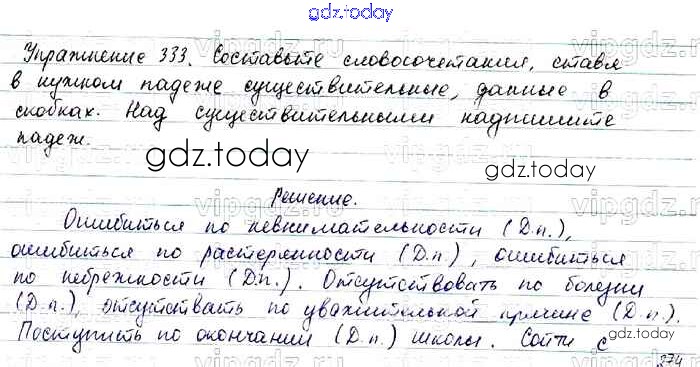 gdz.today
Упражнение 333. Составьте словосочетания, ставя
в нужном падеже существительные, данные в
скобках. Над существительными надпишите
падеж.
gdz.today
gdz.today
Решение.
Ошибиться по невнимательности (Д.п.),
ошибиться по растерянности (Д.п.), ошибиться
по небрежности (Д.п.). Отсутствовать по болезни
(Д.п.), отсутствать по уважительной причине (Д.п.).
Поступить по окончании (Д.п.) школы. Сойти с
gdz.today
274